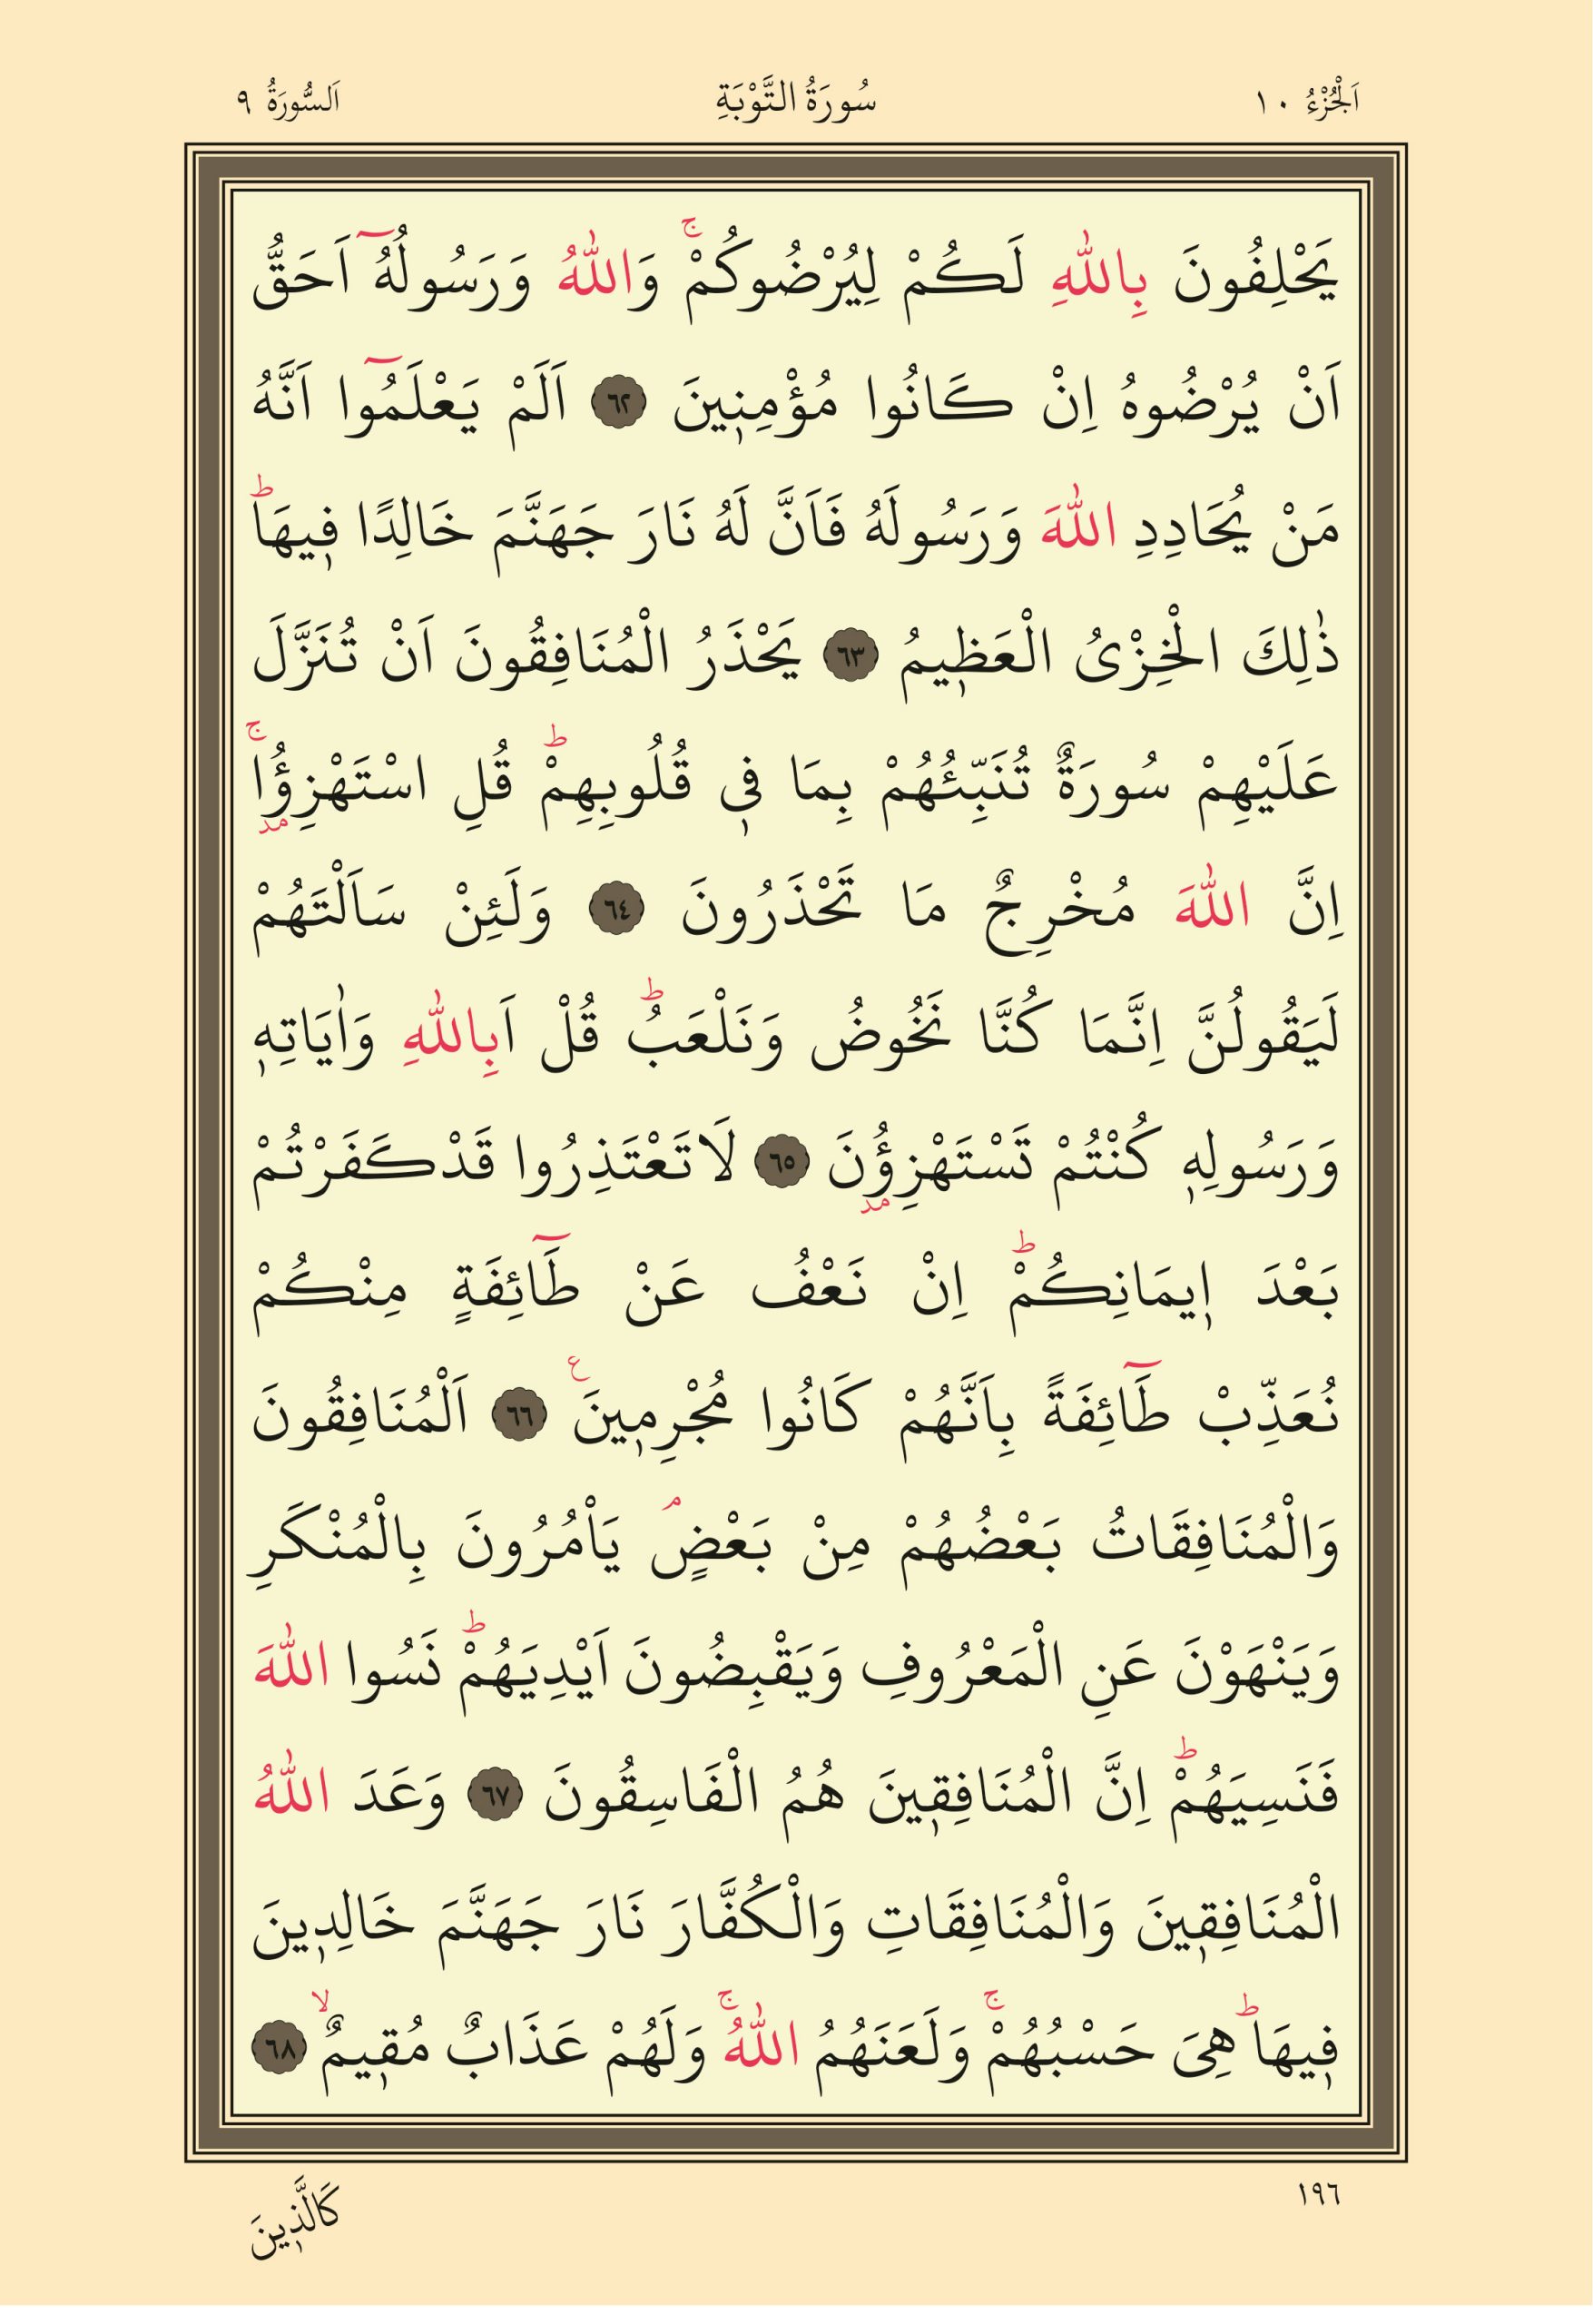 اَلْجُزْءُ ١٠ سُورَةُ التَّوْبَةِ اَلسُّورَةُ ٩
يَحْلِفُونَ بِاللّٰهِ لَكُمْ لِيُرْضُوكُمْۚ وَاللّٰهُ وَرَسُولُهُٓ اَحَقُّ
اَنْ يُرْضُوهُ اِنْ كَانُوا مُؤْمِنٖينَ ﴿٦٢﴾ اَلَمْ يَعْلَمُٓوا اَنَّهُ
مَنْ يُحَادِدِ اللّٰهَ وَرَسُولَهُ فَاَنَّ لَهُ نَارَ جَهَنَّمَ خَالِدًا فٖيهَاؕ
ذٰلِكَ الْخِزْىُ الْعَظٖيمُ ﴿٦٣﴾ يَحْذَرُ الْمُنَافِقُونَ اَنْ تُنَزَّلَ
عَلَيْهِمْ سُورَةٌ تُنَبِّئُهُمْ بِمَا فٖى قُلُوبِهِمْؕ قُلِ اسْتَهْزِؤُ۫اۚ
اِنَّ اللّٰهَ مُخْرِجٌ مَا تَحْذَرُونَ ﴿٦٤﴾ وَلَئِنْ سَاَلْتَهُمْ
لَيَقُولُنَّ اِنَّمَا كُنَّا نَخُوضُ وَنَلْعَبُؕ قُلْ اَبِاللّٰهِ وَاٰيَاتِهٖ
وَرَسُولِهٖ كُنْتُمْ تَسْتَهْزِؤُ۫نَ ﴿٦٥﴾ لَا تَعْتَذِرُوا قَدْ كَفَرْتُمْ
بَعْدَ اٖيمَانِكُمْؕ اِنْ نَعْفُ عَنْ طَٓائِفَةٍ مِنْكُمْ
نُعَذِّبْ طَٓائِفَةً بِاَنَّهُمْ كَانُوا مُجْرِمٖينَࣖ ﴿٦٦﴾ اَلْمُنَافِقُونَ
وَالْمُنَافِقَاتُ بَعْضُهُمْ مِنْ بَعْضٍۢ يَاْمُرُونَ بِالْمُنْكَرِ
وَيَنْهَوْنَ عَنِ الْمَعْرُوفِ وَيَقْبِضُونَ اَيْدِيَهُمْؕ نَسُوا اللّٰهَ
فَنَسِيَهُمْؕ اِنَّ الْمُنَافِقٖينَ هُمُ الْفَاسِقُونَ ﴿٦٧﴾ وَعَدَ اللّٰهُ
الْمُنَافِقٖينَ وَالْمُنَافِقَاتِ وَالْكُفَّارَ نَارَ جَهَنَّمَ خَالِدٖينَ
فٖيهَاؕ هِىَ حَسْبُهُمْۚ وَلَعَنَهُمُ اللّٰهُۚ وَلَهُمْ عَذَابٌ مُقٖيمٌۙ ﴿٦٨﴾
١٩٦ كَالَّذٖينَ